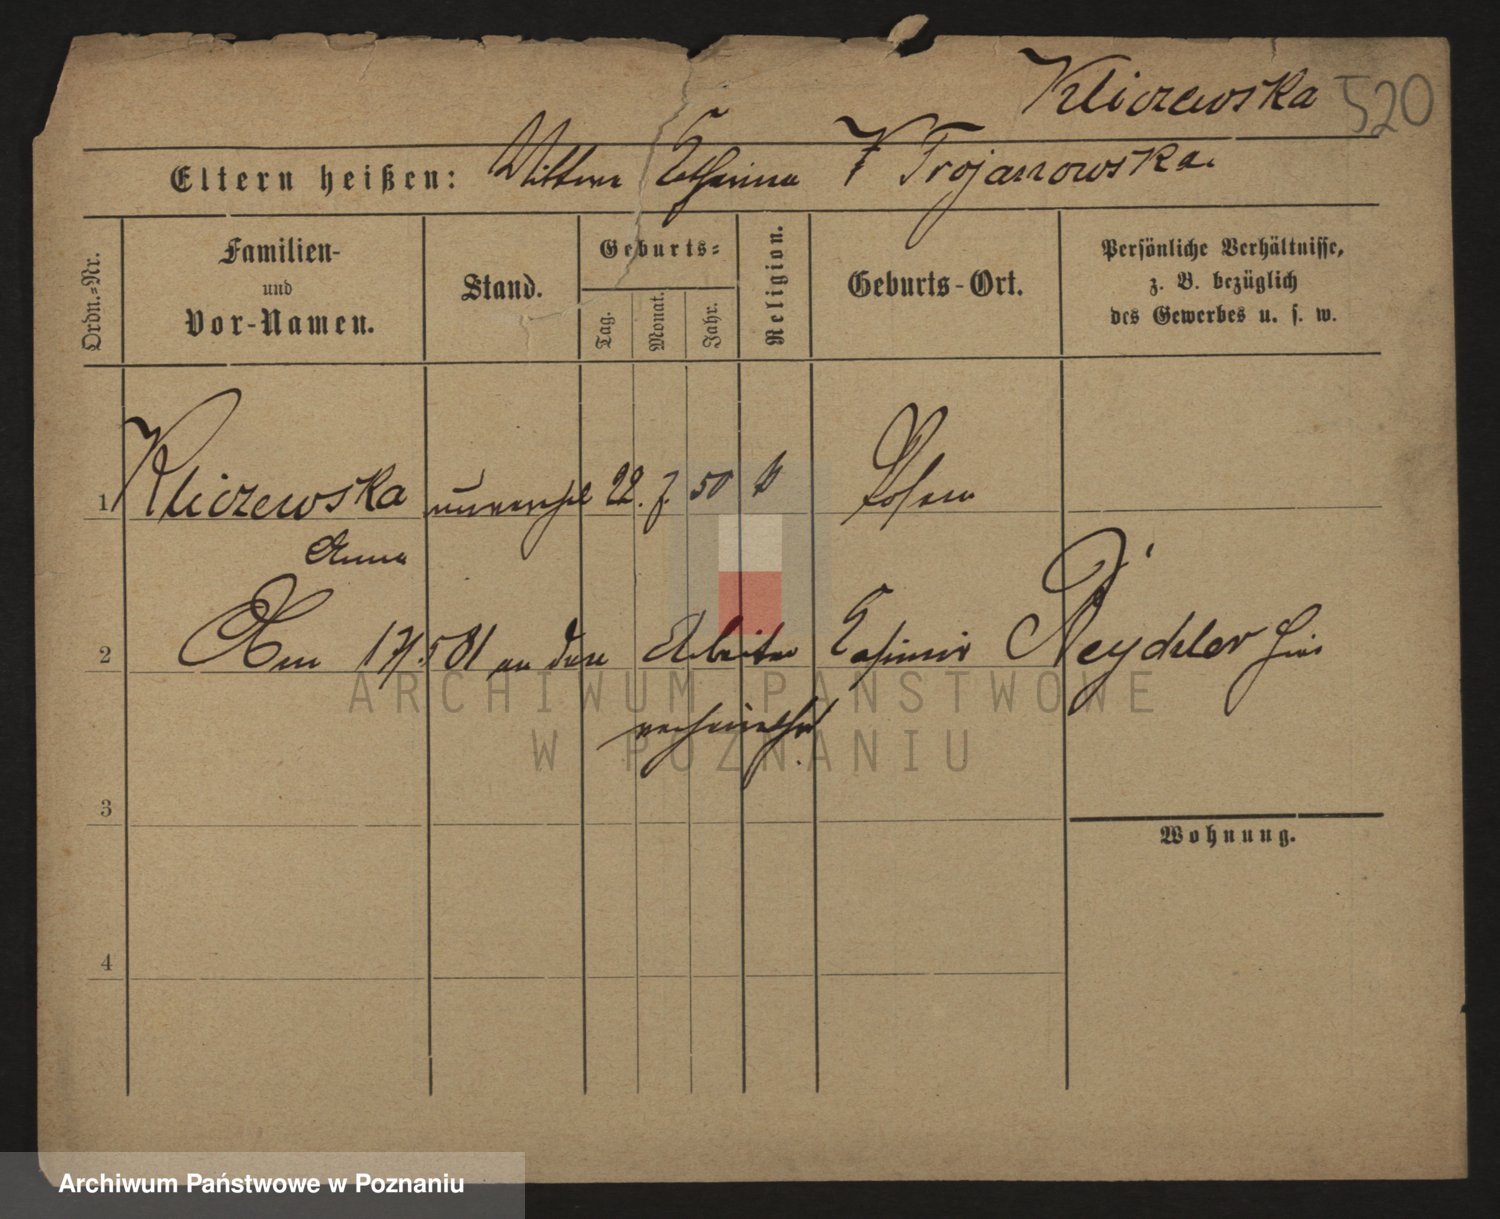 Kliczewska 520
Eltern heißen: Wittwe Catharina Trojanowska.
Ordn.-Nr.
Familien-
und
Vor-Namen.
Stand.
Geburts-
Tag.
Monat.
Jahr.
Religion.
Geburts-Ort.
Persönliche Verhältnisse,
z. B. bezüglich
des Gewerbes u. s. w.
1 Kliczewska unverehl 22. 7. 50 k Posen
Anna
2 Am 17/.5 81 an den Arbeiter Casimir Reychler hier
verheirathet.
3
Wohnung.
4
ARCHIWUM PAŃSTWOWE
W POZNANIU
Archiwum Państwowe w Poznaniu